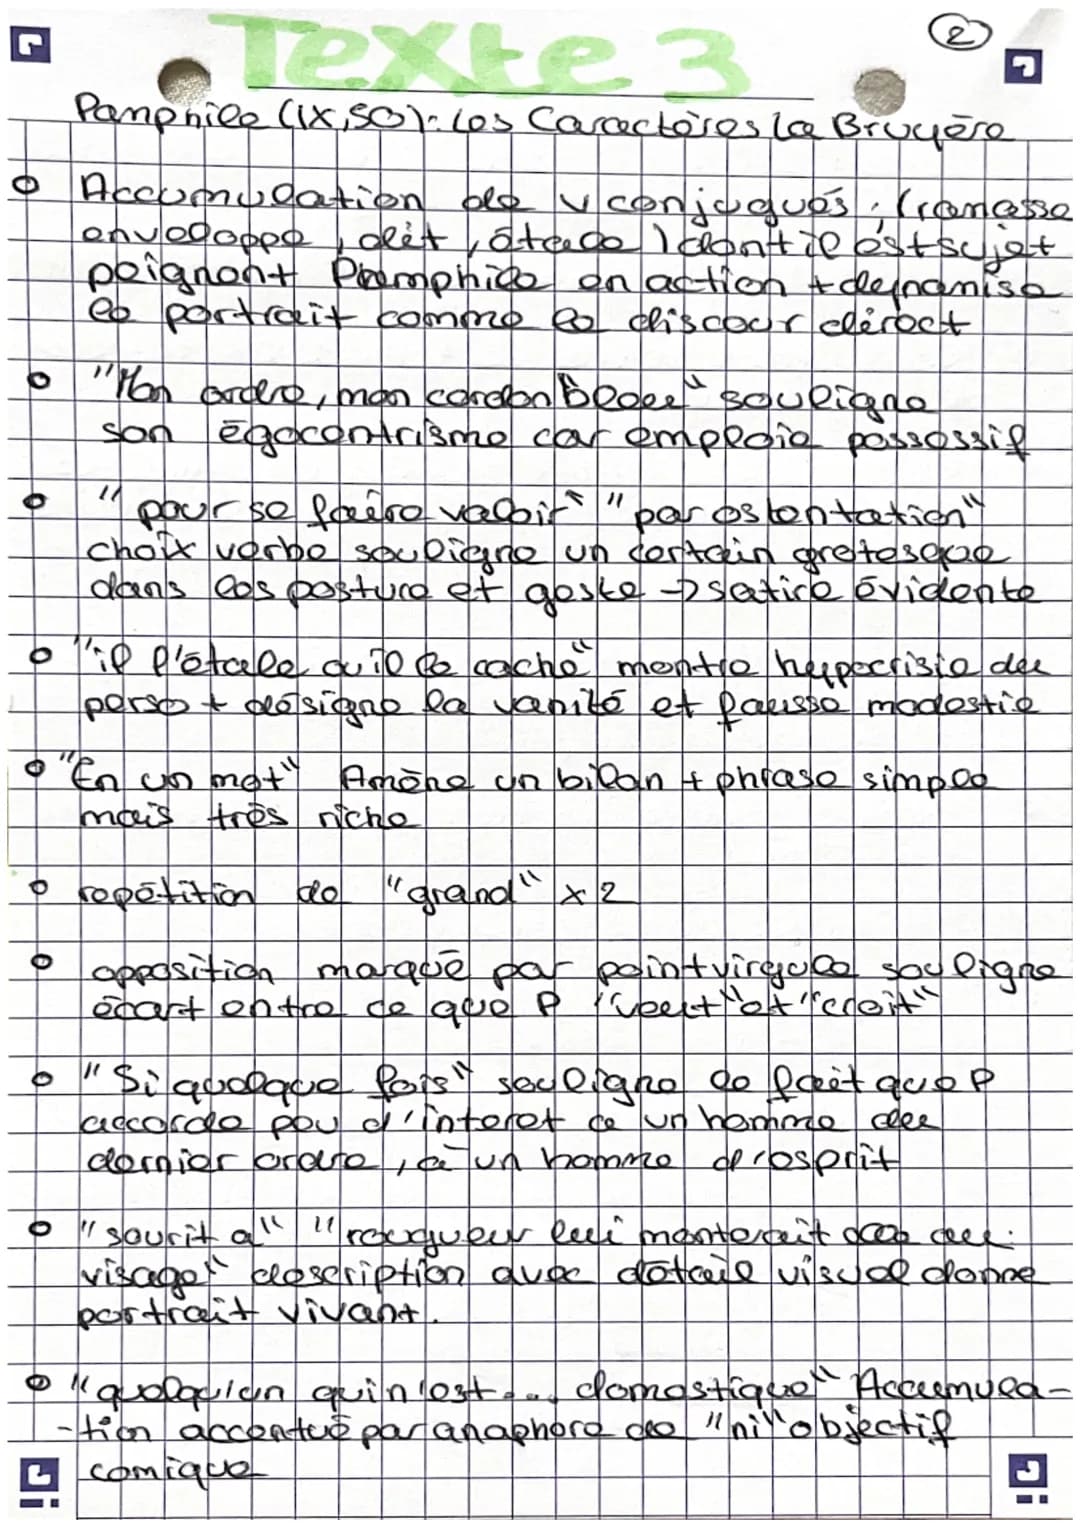 Texte 3
2
Pamphile (IX,50): Les Caractères La Bruyère
Accumulation de v conjugués, (ramasse
enveloppe, dit, étale) dont il est sujet
peignant Pamphile en action + dynamise
le portrait comme le discour direct
"Mon ordre, mon cordon bleu" souligne
son égocentrisme car emploie possessif
"pour se faire valoir" "par ostentation"
choix verbe souligne un certain grotesque
dans les posture et geste → satire évidente
"il l'étale ou il le cache" montre hypocrisie du
perso + désigne la vanité et fausse modestie
"En un mot" Amène un bilan + phrase simple
mais très riche
repétition de "grand" x 2
opposition marqué par point virgule souligne
écart entre ce que P "veut" et "croit"
"Si quelque fois" souligne le fait que P
accorde peu d'interet à un homme du
dernier ordre, à un homme d'esprit
"sourit à" "rougueur lui monterait au
visage" description avec détail visuel donne
portrait vivant.
"quelqu'un quin'est... domestique" Accumula-
-tion accentué par anaphore de "ni" objectif
comique